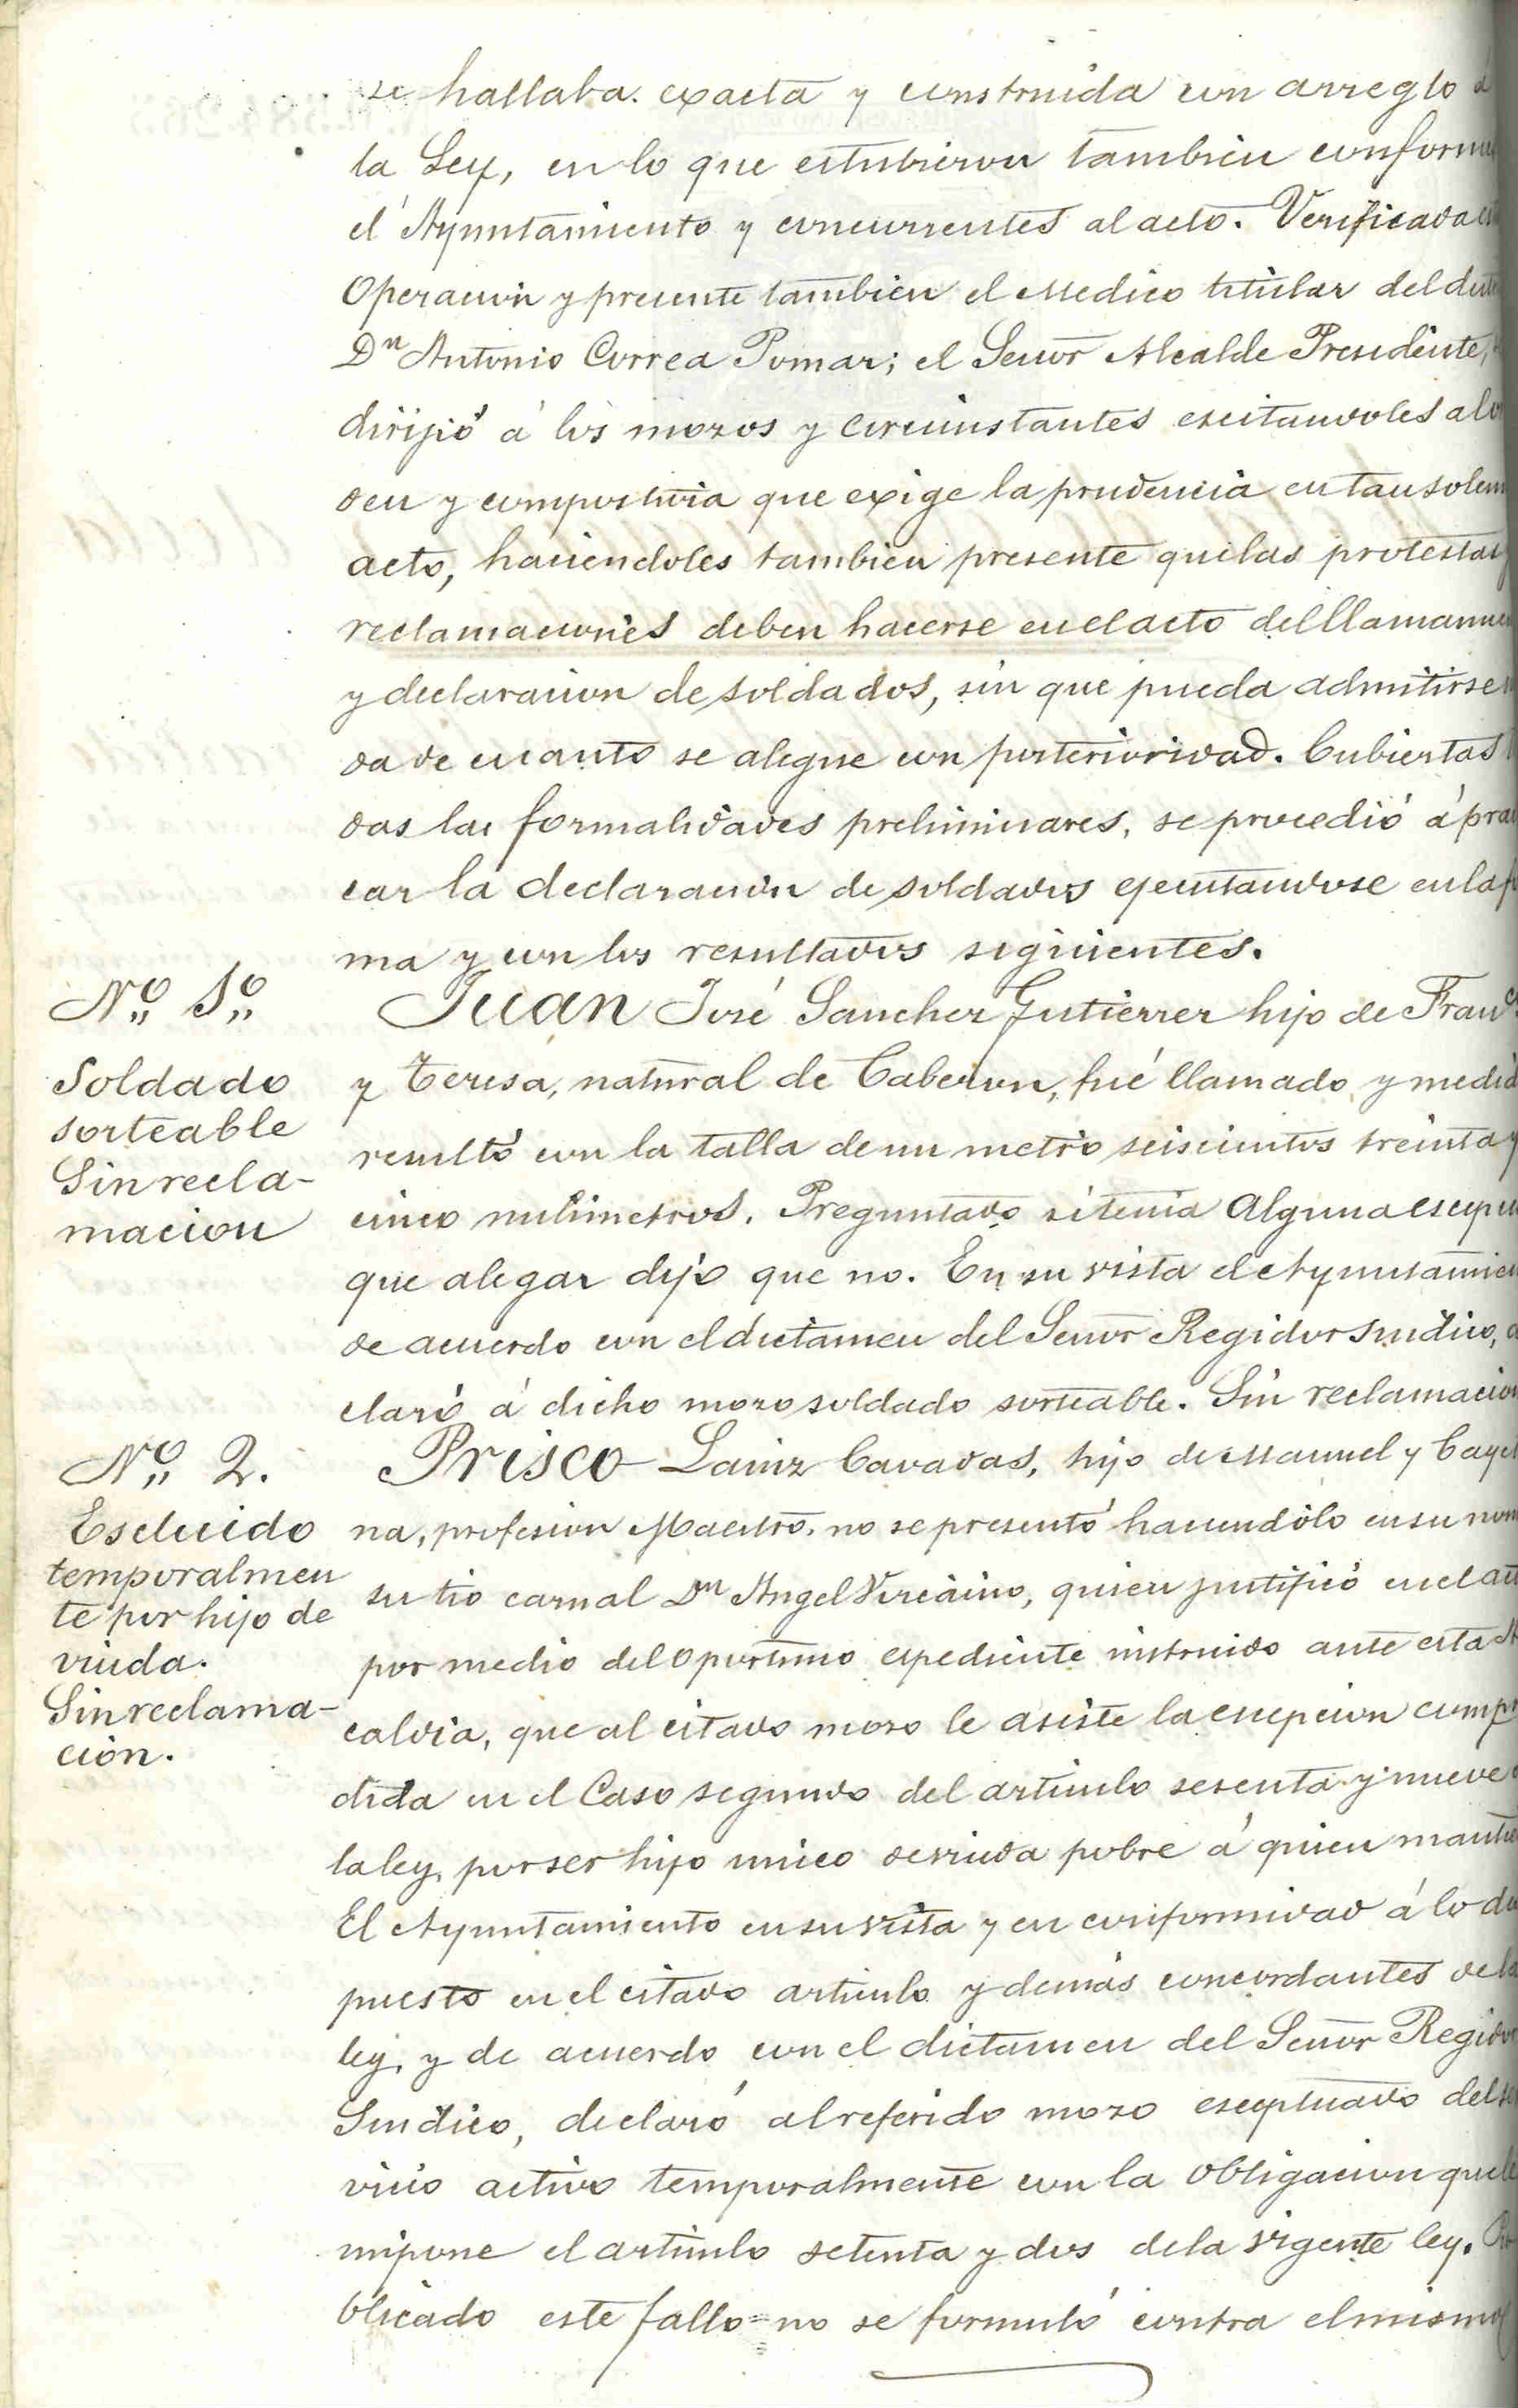 se hallaba exacta y construida con arreglo á
la Ley, en lo que estubieron tambien conforme
el Ayuntamiento y concurrentes al acto. Verificada
Operacion y presente tambien el Medico titular del
Dn Antonio Correa Pomar; el Señor Alcalde Presidente,
dirijió á los mozos y circunstantes escitandoles al
den y compostura que exige la prudencia en tan solem
acto, haciendoles tambien presente que las protestas
reclamaciones deben hacerse en el acto del llamamie
y declaracion de soldados, sin que pueda admitirse
da de cuanto se alegue con posterioridad. Cubiertas
das las formalidades preliminares, se procedió á prac
car la declaracion de soldados ejecutandose en la f
ma y con los resultados siguientes.
Nº 1º
Soldado
sorteable
Sin recla-
macion
Juan José Sanchez Gutierrez hijo de Franco
y Teresa, natural de Cabezon, fué llamado y medid
resultó con la talla de un metro seiscientos treinta y
cinco milimetros. Preguntado si tenia alguna escepci
que alegar dijo que no. En su vista el Ayuntamien
de acuerdo con el dictamen del Señor Regidor Sindico,
claró á dicho mozo soldado sorteable. Sin reclamacion
Nº 2.
Escluido
temporalmen
te por hijo de
viuda.
Sin reclama-
ción.
Prisco Lainz Cavadas, hijo de Manuel y Caye
na, profesion Maestro, no se presentó haciendolo en su nom
su tio carnal Dn Angel Vizcaino, quien justificó en el
por medio del oportuno espediente instruido ante esta Al
caldia, que al citado mozo le asiste la escepcion comp
dida en el Caso segundo del articulo sesenta y nueve
la ley, por ser hijo unico de viuda pobre á quien mantie
El Ayuntamiento en su vista y en conformidad á lo
puesto en el citado articulo y demás concordantes de la
ley, y de acuerdo con el dictamen del Señor Regidor
Sindico, declaró al referido mozo esceptuado del ser
vicio activo temporalmente con la obligacion que le
impone el articulo setenta y dos de la vigente ley.
blicado este fallo no se formuló contra el mismo